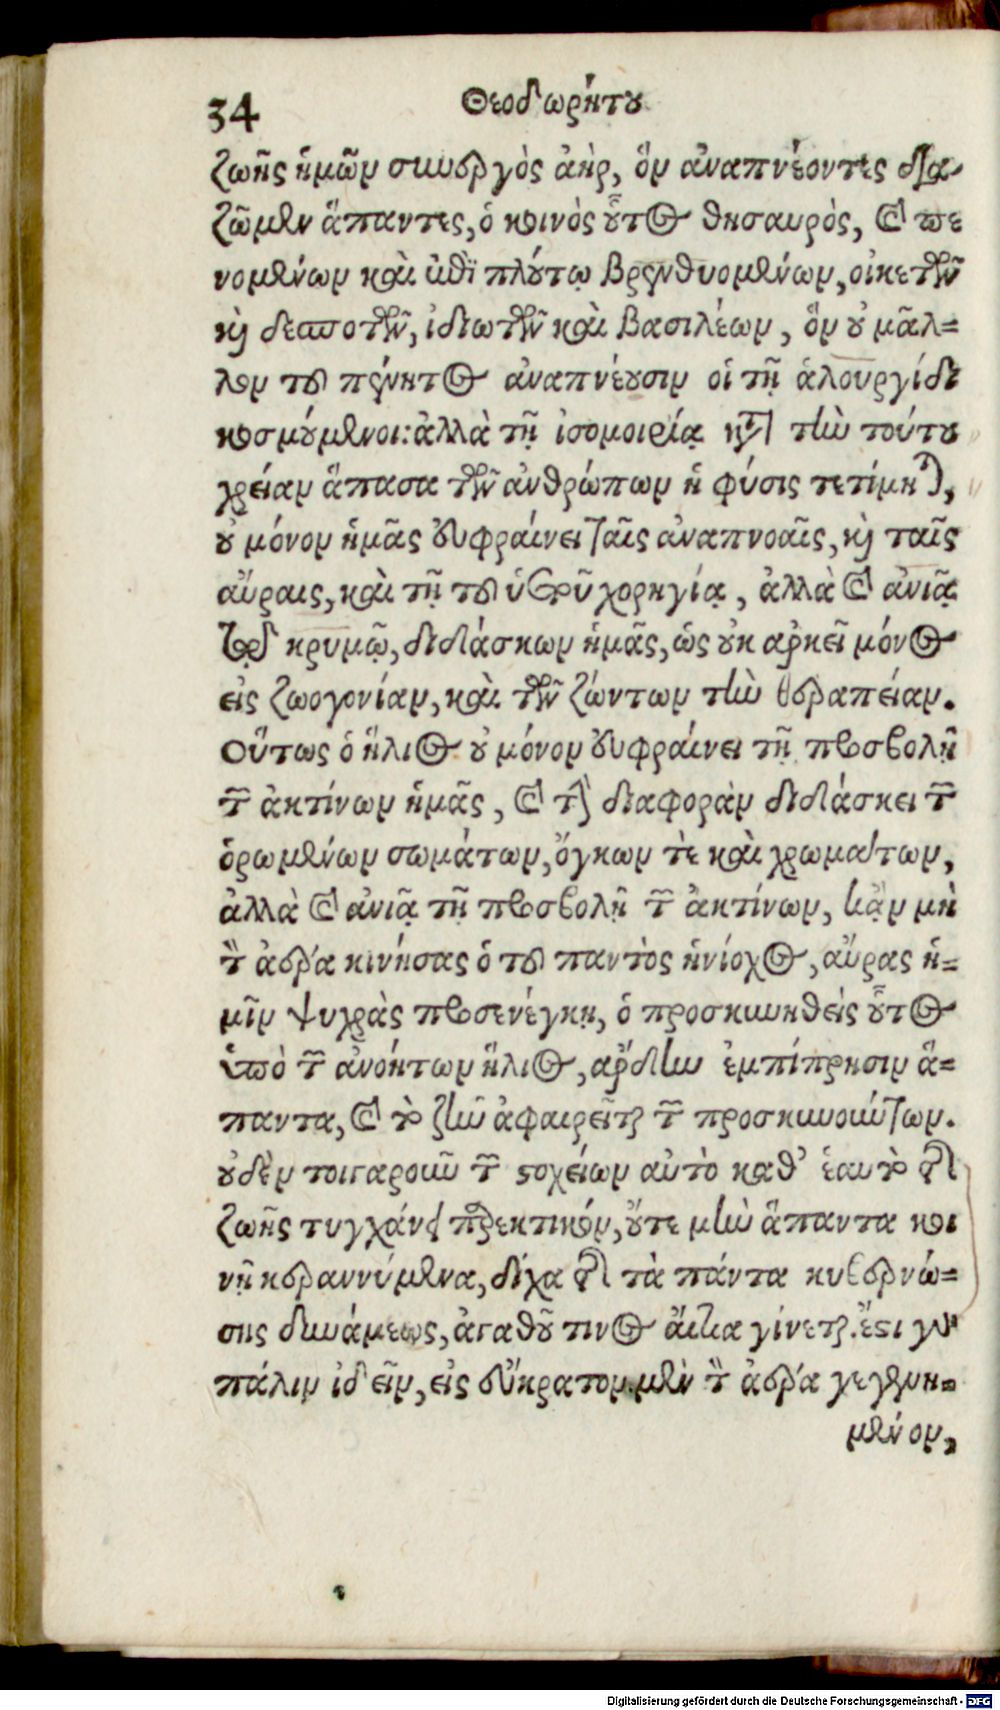 34 Θεοδωρήτου
ζωῆς ἡμῶν συνεργὸς ἀὴρ, ὃν ἀναπνέοντες δια-
ζῶμεν ἅπαντες, ὁ κοινὸς οὗτος θησαυρὸς, καὶ πε
νομένων καὶ ἐπὶ πλούτῳ βρενθυομένων, οἰκετῶν
καὶ δεσποτῶν, ἰδιωτῶν καὶ βασιλέων, ὃν οὐ μᾶλ=
λον τοῦ πένητος ἀναπνέουσιν οἱ τῇ ἁλουργίδι
κοσμούμενοι: ἀλλὰ τῇ ἰσομοιρίᾳ κατὰ τὴν τούτου
χρείαν ἅπασα τῶν ἀνθρώπων ἡ φύσις τετίμηται,
οὐ μόνον ἡμᾶς εὐφραίνει ταῖς ἀναπνοαῖς, καὶ ταῖς
αὔραις, καὶ τῇ τοῦ ὑετοῦ χορηγίᾳ, ἀλλὰ καὶ ἀνιᾷ
τῷ κρυμῷ, διδάσκων ἡμᾶς, ὡς οὐκ ἀρκεῖ μόνος
εἰς ζωογονίαν, καὶ τῶν ζώντων τὴν θεραπείαν.
Οὕτως ὁ ἥλιος οὐ μόνον εὐφραίνει τῇ προσβολῇ
τῶν ἀκτίνων ἡμᾶς, καὶ τὴν διαφορὰν διδάσκει τῶν
ὁρωμένων σωμάτων, ὄγκων τὲ καὶ χρωμάτων,
ἀλλὰ καὶ ἀνιᾷ τῇ προσβολῇ τῶν ἀκτίνων, κἂν μὴ
τὸν ἀέρα κινήσας ὁ τοῦ παντὸς ἡνίοχος, αὔρας ἡ=
μῖν ψυχρὰς προσενέγκῃ, ὁ προσκυνηθεὶς οὗτος
ὑπὸ τῶν ἀνοήτων ἥλιος, ἄρδην ἐμπίπρησιν ἅ=
παντα, καὶ τὸ ζῆν ἀφαιρεῖται τῶν προσκυνούντων.
οὐδὲν τοιγαροῦν τῶν στοχείων αὐτὸ καθ’ ἑαυτὸ τῆς
ζωῆς τυγχάνει παρεκτικόν, οὔτε μὴν ἅπαντα κοι
νῇ κεραννύμενα, δίχα τῆς τὰ πάντα κυβερνώ=
σης δυνάμεως, ἀγαθοῦ τινος αἴτια γίνεται. ἔστι γοῦν
πάλιν ἰδεῖν, εἰς εὔκρατον μὲν τὸν ἀέρα γεγενη=
μένον,
Digitalisierung gefördert durch die Deutsche Forschungsgemeinschaft - DFG